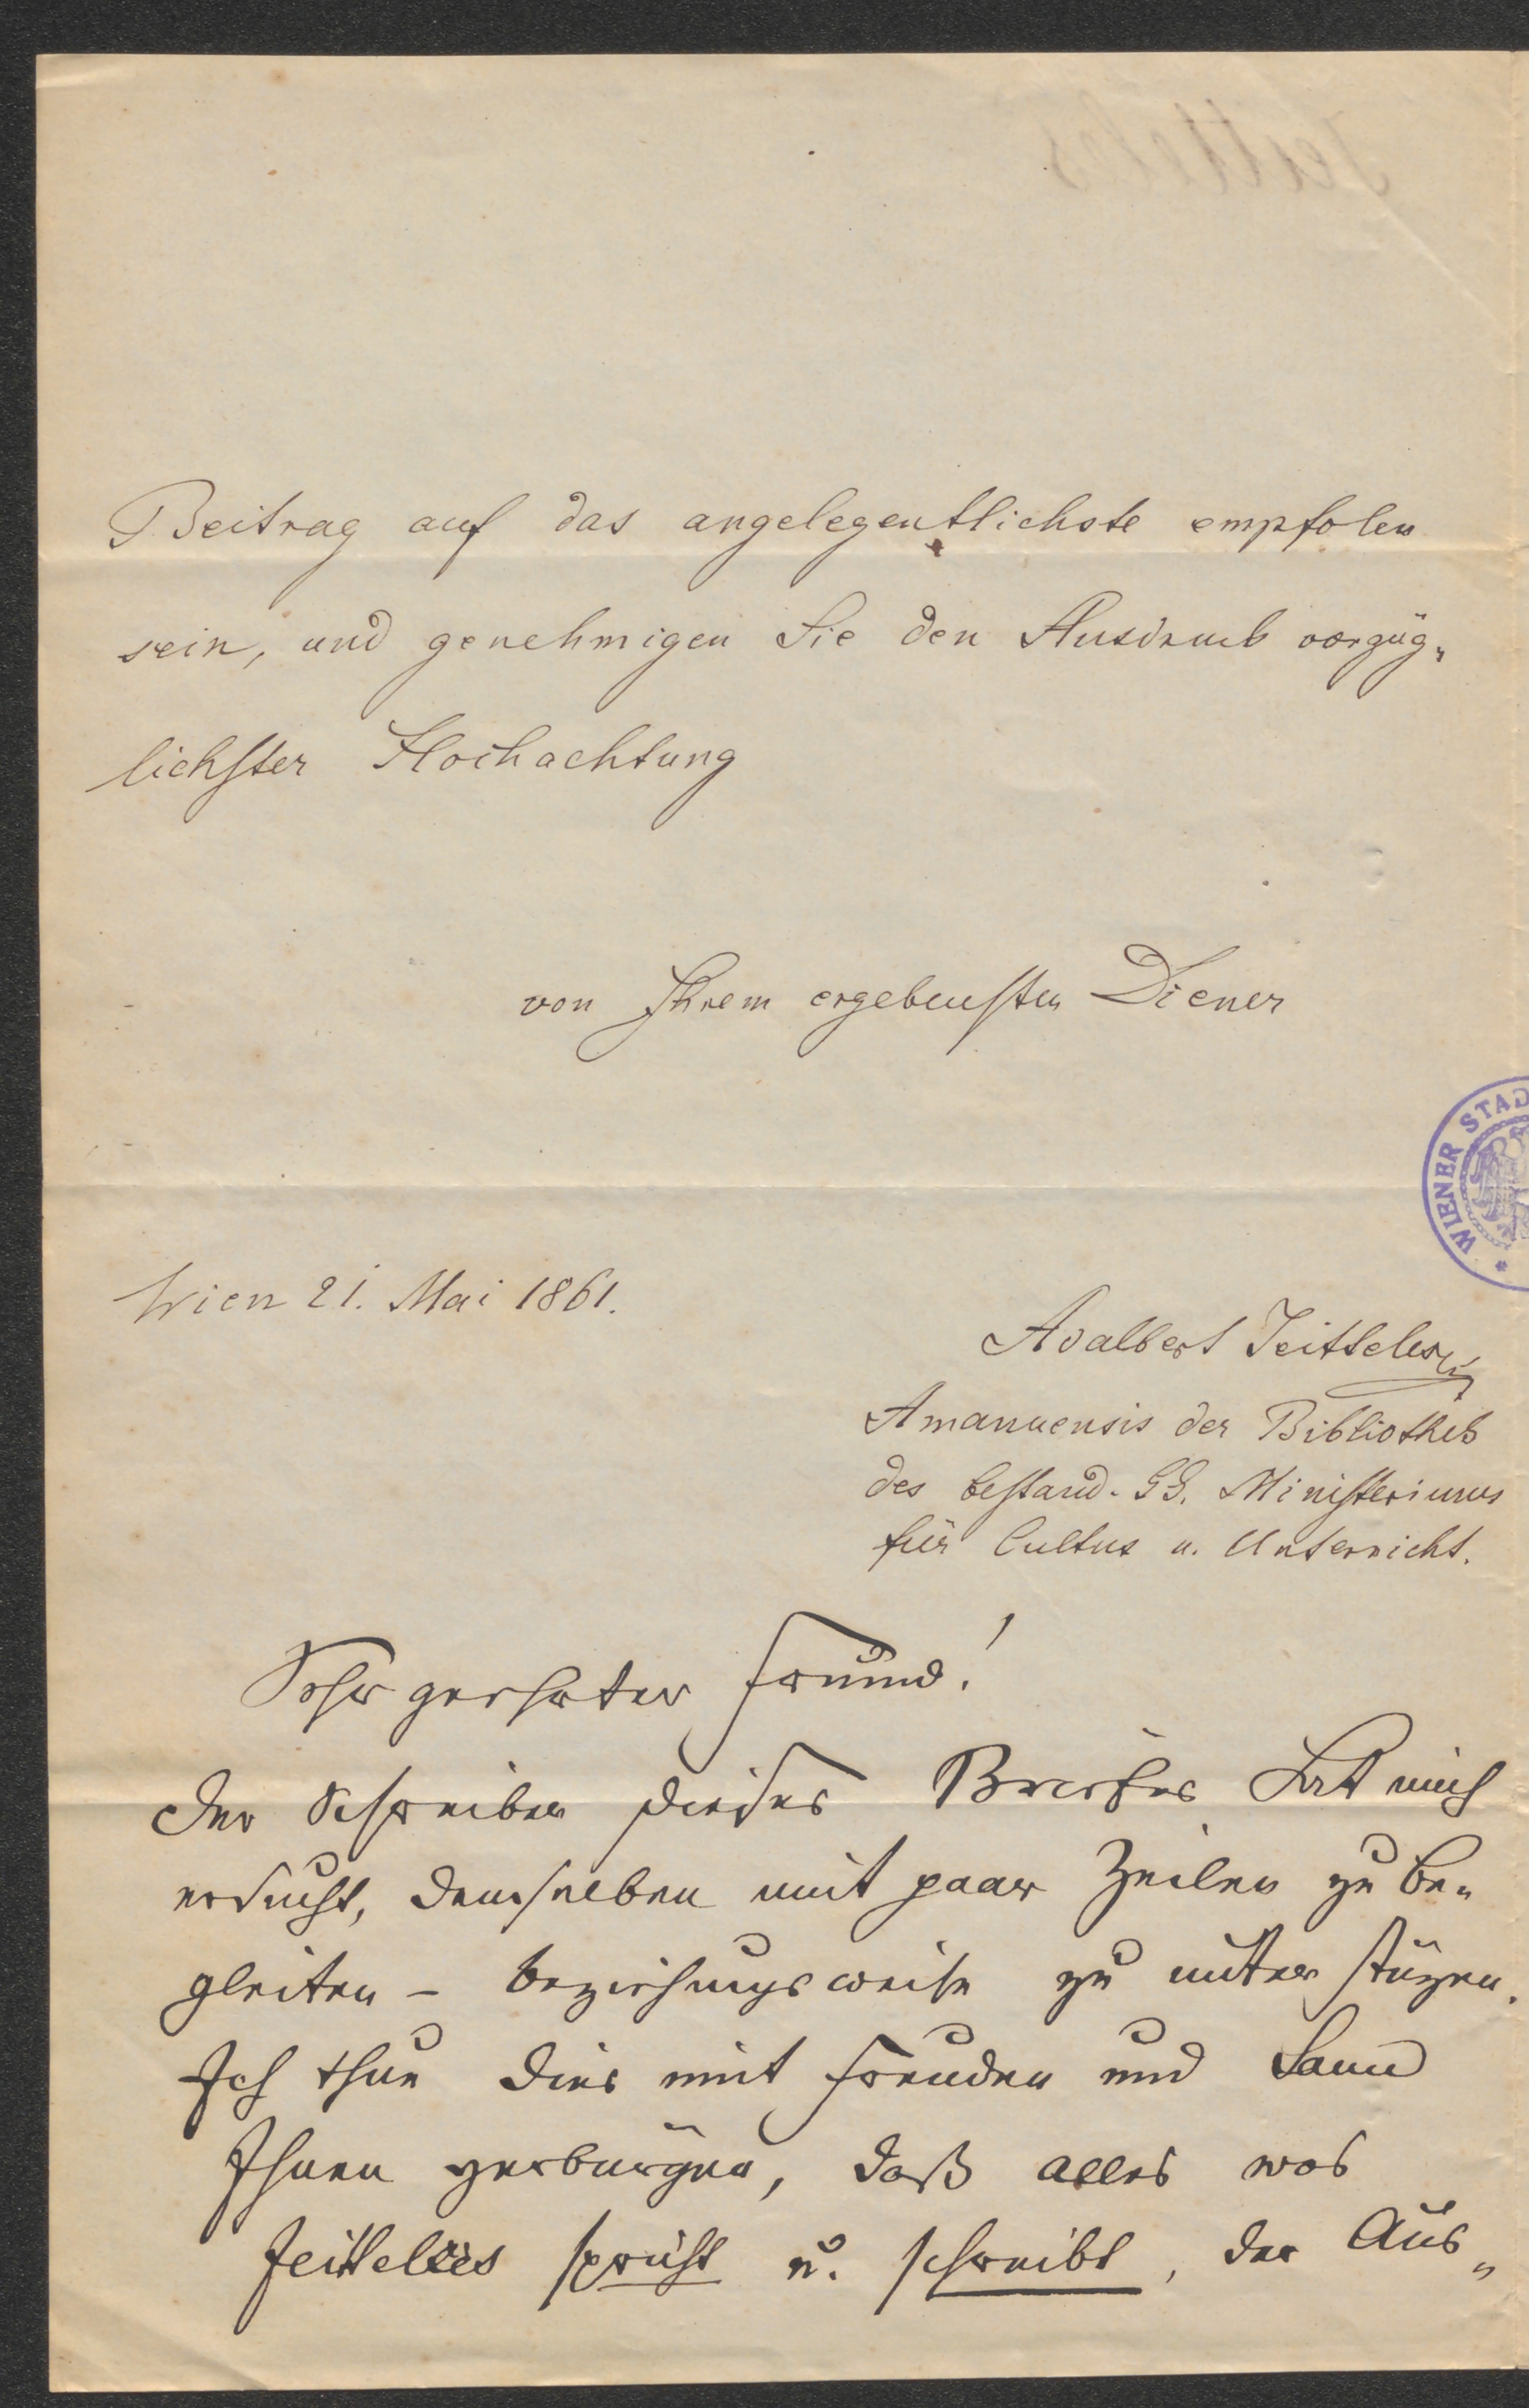 Beitrag auf das angelegentlichste empfolen
sein, und genehmigen Sie den Ausdruck vorzüg„
lichster Hochachtung
von Ihrem ergebensten Diener
WIENER STAD
Wien 21. Mai 1861.
Adalbert Jeitteles
Amanuensis der Bibliothek
des bestand. Ministeriums
für Cultus u. Unterricht.
Sehr geehrter Freund!
Der Schreiber dieses Briefes hat mich
ersucht, denselben mit paar Zeilen zu be„
gleiten – beziehungsweise zu unterstüzen.
Ich thue dies mit Freuden und kann
Ihnen verbürgen, daß alles was
Jeitteles spricht u. schreibt, der Aus„